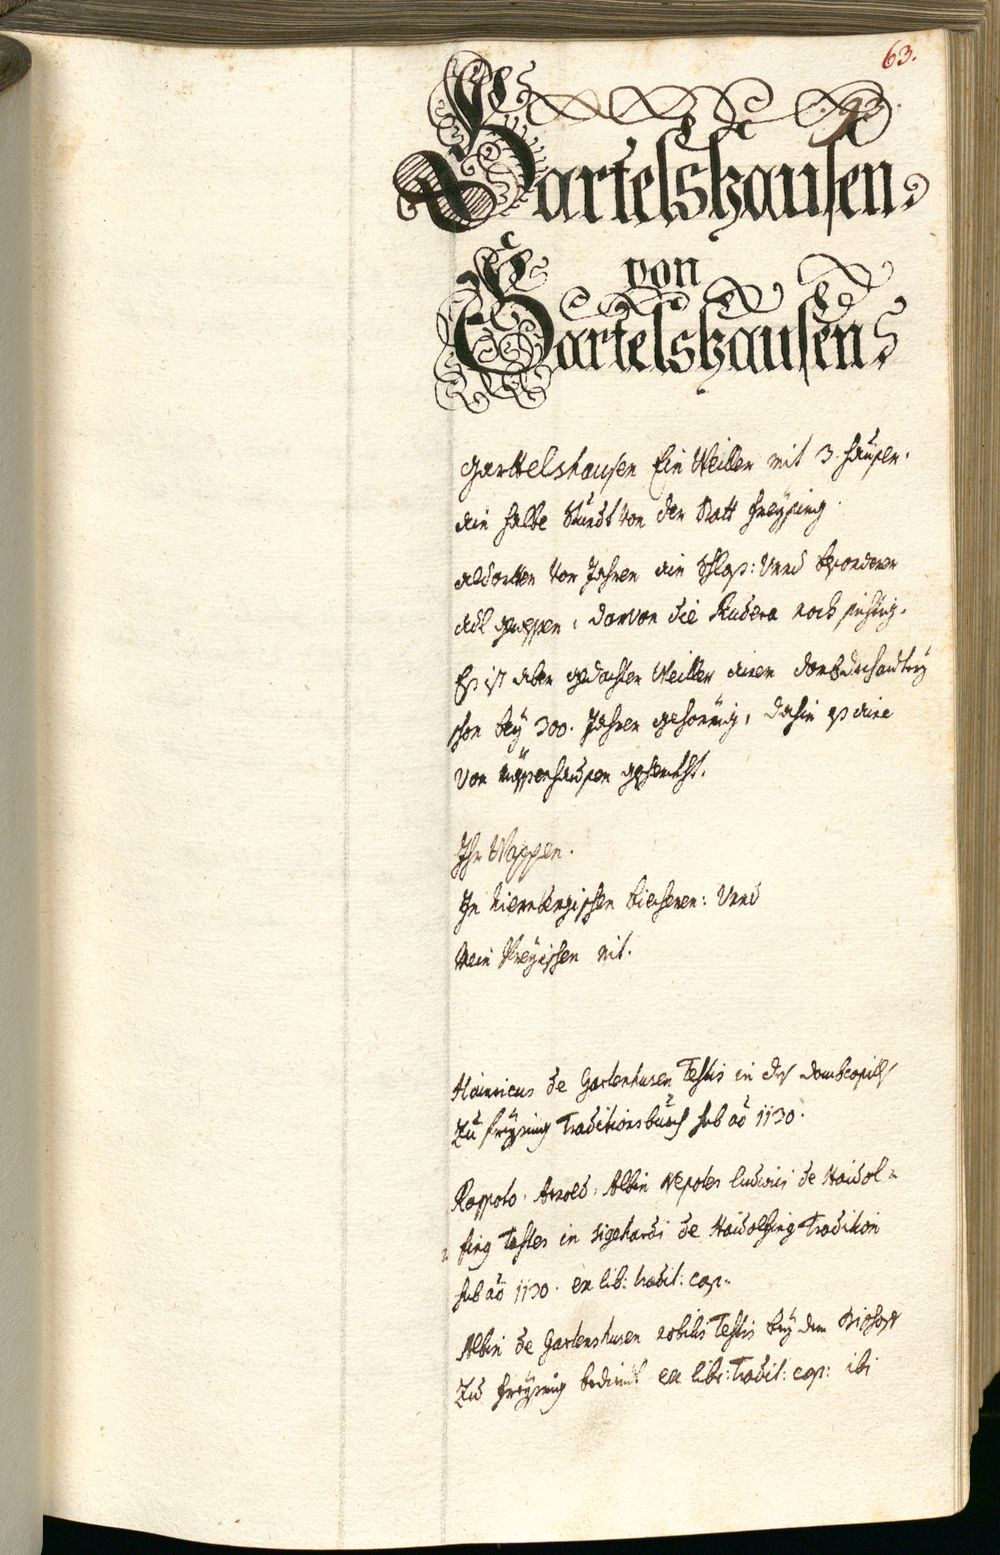 63.
Gartelshausen
von
Gartelshausen
Garttelshausen Ein Weiller mit 3. heüser.
ain halbe Stundt von der Statt Freÿsing.
aldorten vor Jahren ain Schloß: Unnd besonderer
Adl gewessen, darvon die Rudera noch sichtig.
Es ist aber gedachter Weiller einem dombdechandteÿ
schon beÿ 300. Jahren gehörrig, dahin es aine
von
Ihr Wappen.
In Niernbergischen biecheren: Unnd
mein Preÿischen nit.
Hainricus de Gartenhusen Testis in des dombcapitls
Zu freÿsing Traditionsbuech sub ao 1130.
Rappoto. Arnold. Albin Nepotes ludovici de Haidol-
fing Testes in Sigehardi de Haidolfing Tradition
sub ao 1130. ex lib: tradit: cap.
Albin de Gartenshusen nobilis Testis beÿ dem Bischoff
Zu Freÿsing ex libr: Tradit: cap: ibi